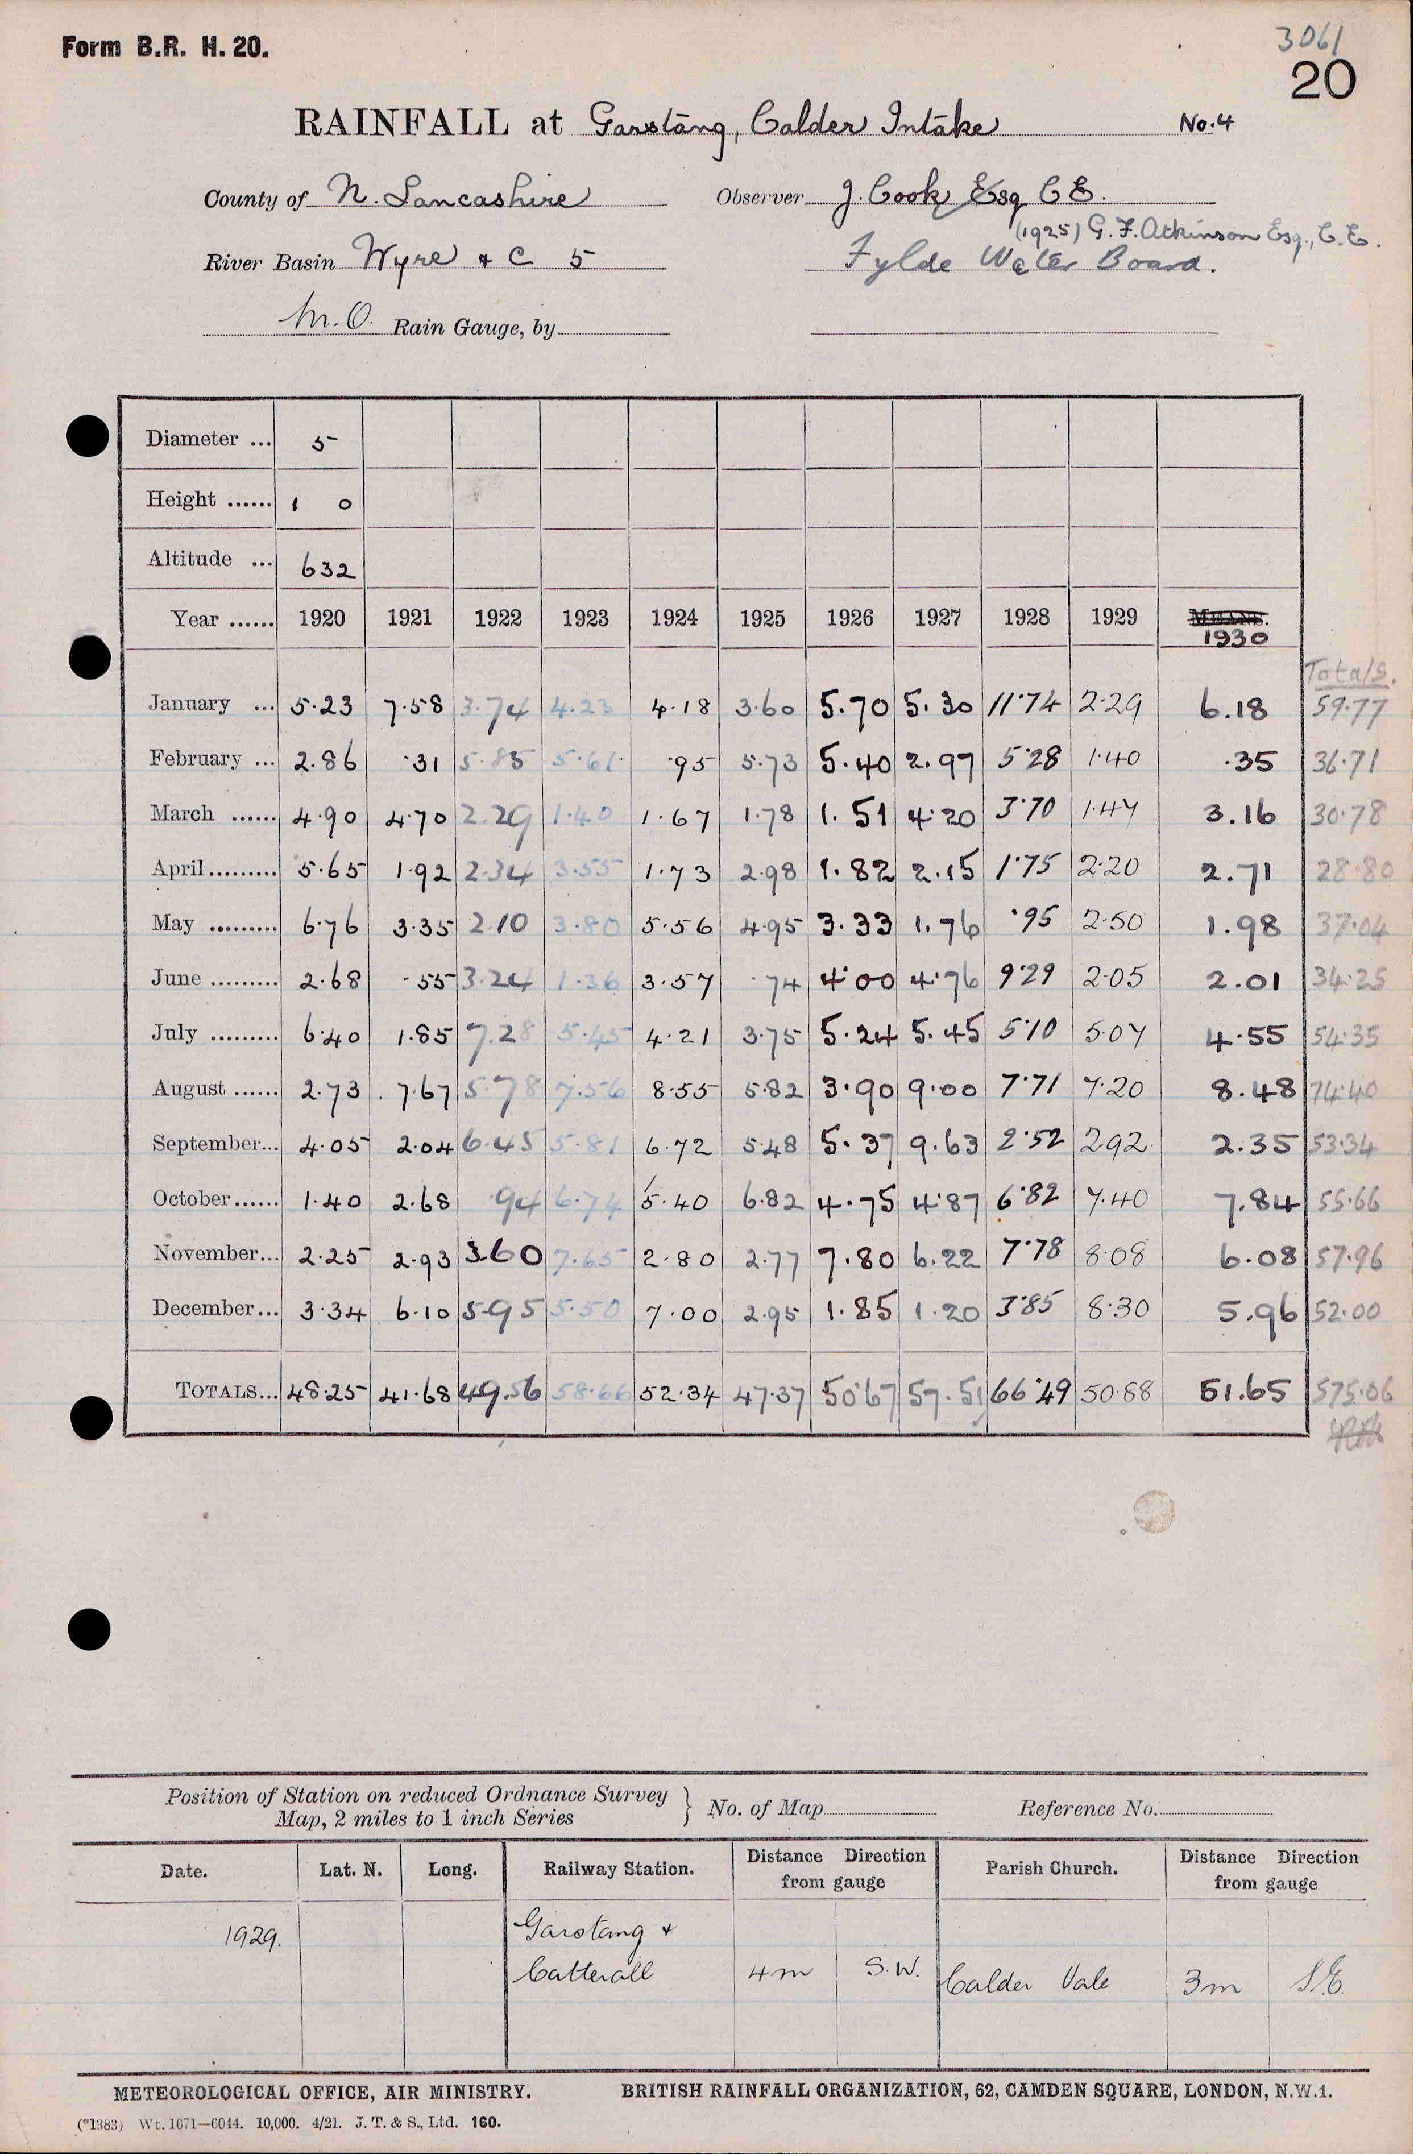 Form B.R. H. 20.
3061
20
RAINFALL at Garstang, Calder Intake No. 4
County of N. Lancashire Observer J. Cook Esq C E.
(1925) G. F. Atkinson Esq., C. E.
River Basin Wyre & C 5 Fylde Water Board.
M.O. Rain Gauge, by
Diameter ... 5
Height ...... 1 0
Altitude ... 632
Year ...... 1920 1921 1922 1923 1924 1925 1926 1927 1928 1929 MEANS. 1930
Totals.
January ... 5.23 7.58 3.74 4.23 4.18 3.60 5.70 5.30 11.74 2.29 6.18 59.77
February ... 2.86 .31 5.85 5.61 .95 5.73 5.40 2.97 5.28 1.40 .35 36.71
March ...... 4.90 4.70 2.29 1.40 1.67 1.78 1.51 4.20 3.70 1.47 3.16 30.78
April......... 5.65 1.92 2.34 3.55 1.73 2.98 1.82 2.15 1.75 2.20 2.71 28.80
May ......... 6.76 3.35 2.10 3.80 5.56 4.95 3.33 1.76 .95 2.50 1.98 37.04
June ......... 2.68 .55 3.24 1.36 3.57 .74 4.00 4.76 9.29 2.05 2.01 34.25
July ......... 6.40 1.85 7.28 5.45 4.21 3.75 5.24 5.45 5.10 5.07 4.55 54.35
August ...... 2.73 7.67 5.78 7.56 8.55 5.82 3.90 9.00 7.71 7.20 8.48 74.40
September... 4.05 2.04 6.45 5.81 6.72 5.48 5.37 9.63 2.52 2.92 2.35 53.34
October...... 1.40 2.68 .94 6.74 5.40 6.82 4.75 4.87 6.82 7.40 7.84 55.66
November... 2.25 2.93 3.60 7.65 2.80 2.77 7.80 6.22 7.78 8.08 6.08 57.96
December... 3.34 6.10 5.95 5.50 7.00 2.95 1.85 1.20 3.85 8.30 5.96 52.00
TOTALS... 48.25 41.68 49.56 58.66 52.34 47.37 50.67 57.51 66.49 50.88 51.65 575.06
Position of Station on reduced Ordnance Survey
Map, 2 miles to 1 inch Series } No. of Map Reference No.
Date. Lat. N. Long. Railway Station. Distance Direction from gauge Parish Church. Distance Direction from gauge
1929. Garstang &
Catterall 4m S.W. Calder Vale 3m S.E.
METEOROLOGICAL OFFICE, AIR MINISTRY. BRITISH RAINFALL ORGANIZATION, 62, CAMDEN SQUARE, LONDON, N.W.1.
(*1383) Wt. 1671—6044. 10,000. 4/21. J. T. & S., Ltd. 160.